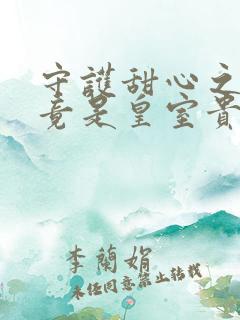 守護甜心之
竟是皇室貴
李蘭娟
未经同意禁止转载